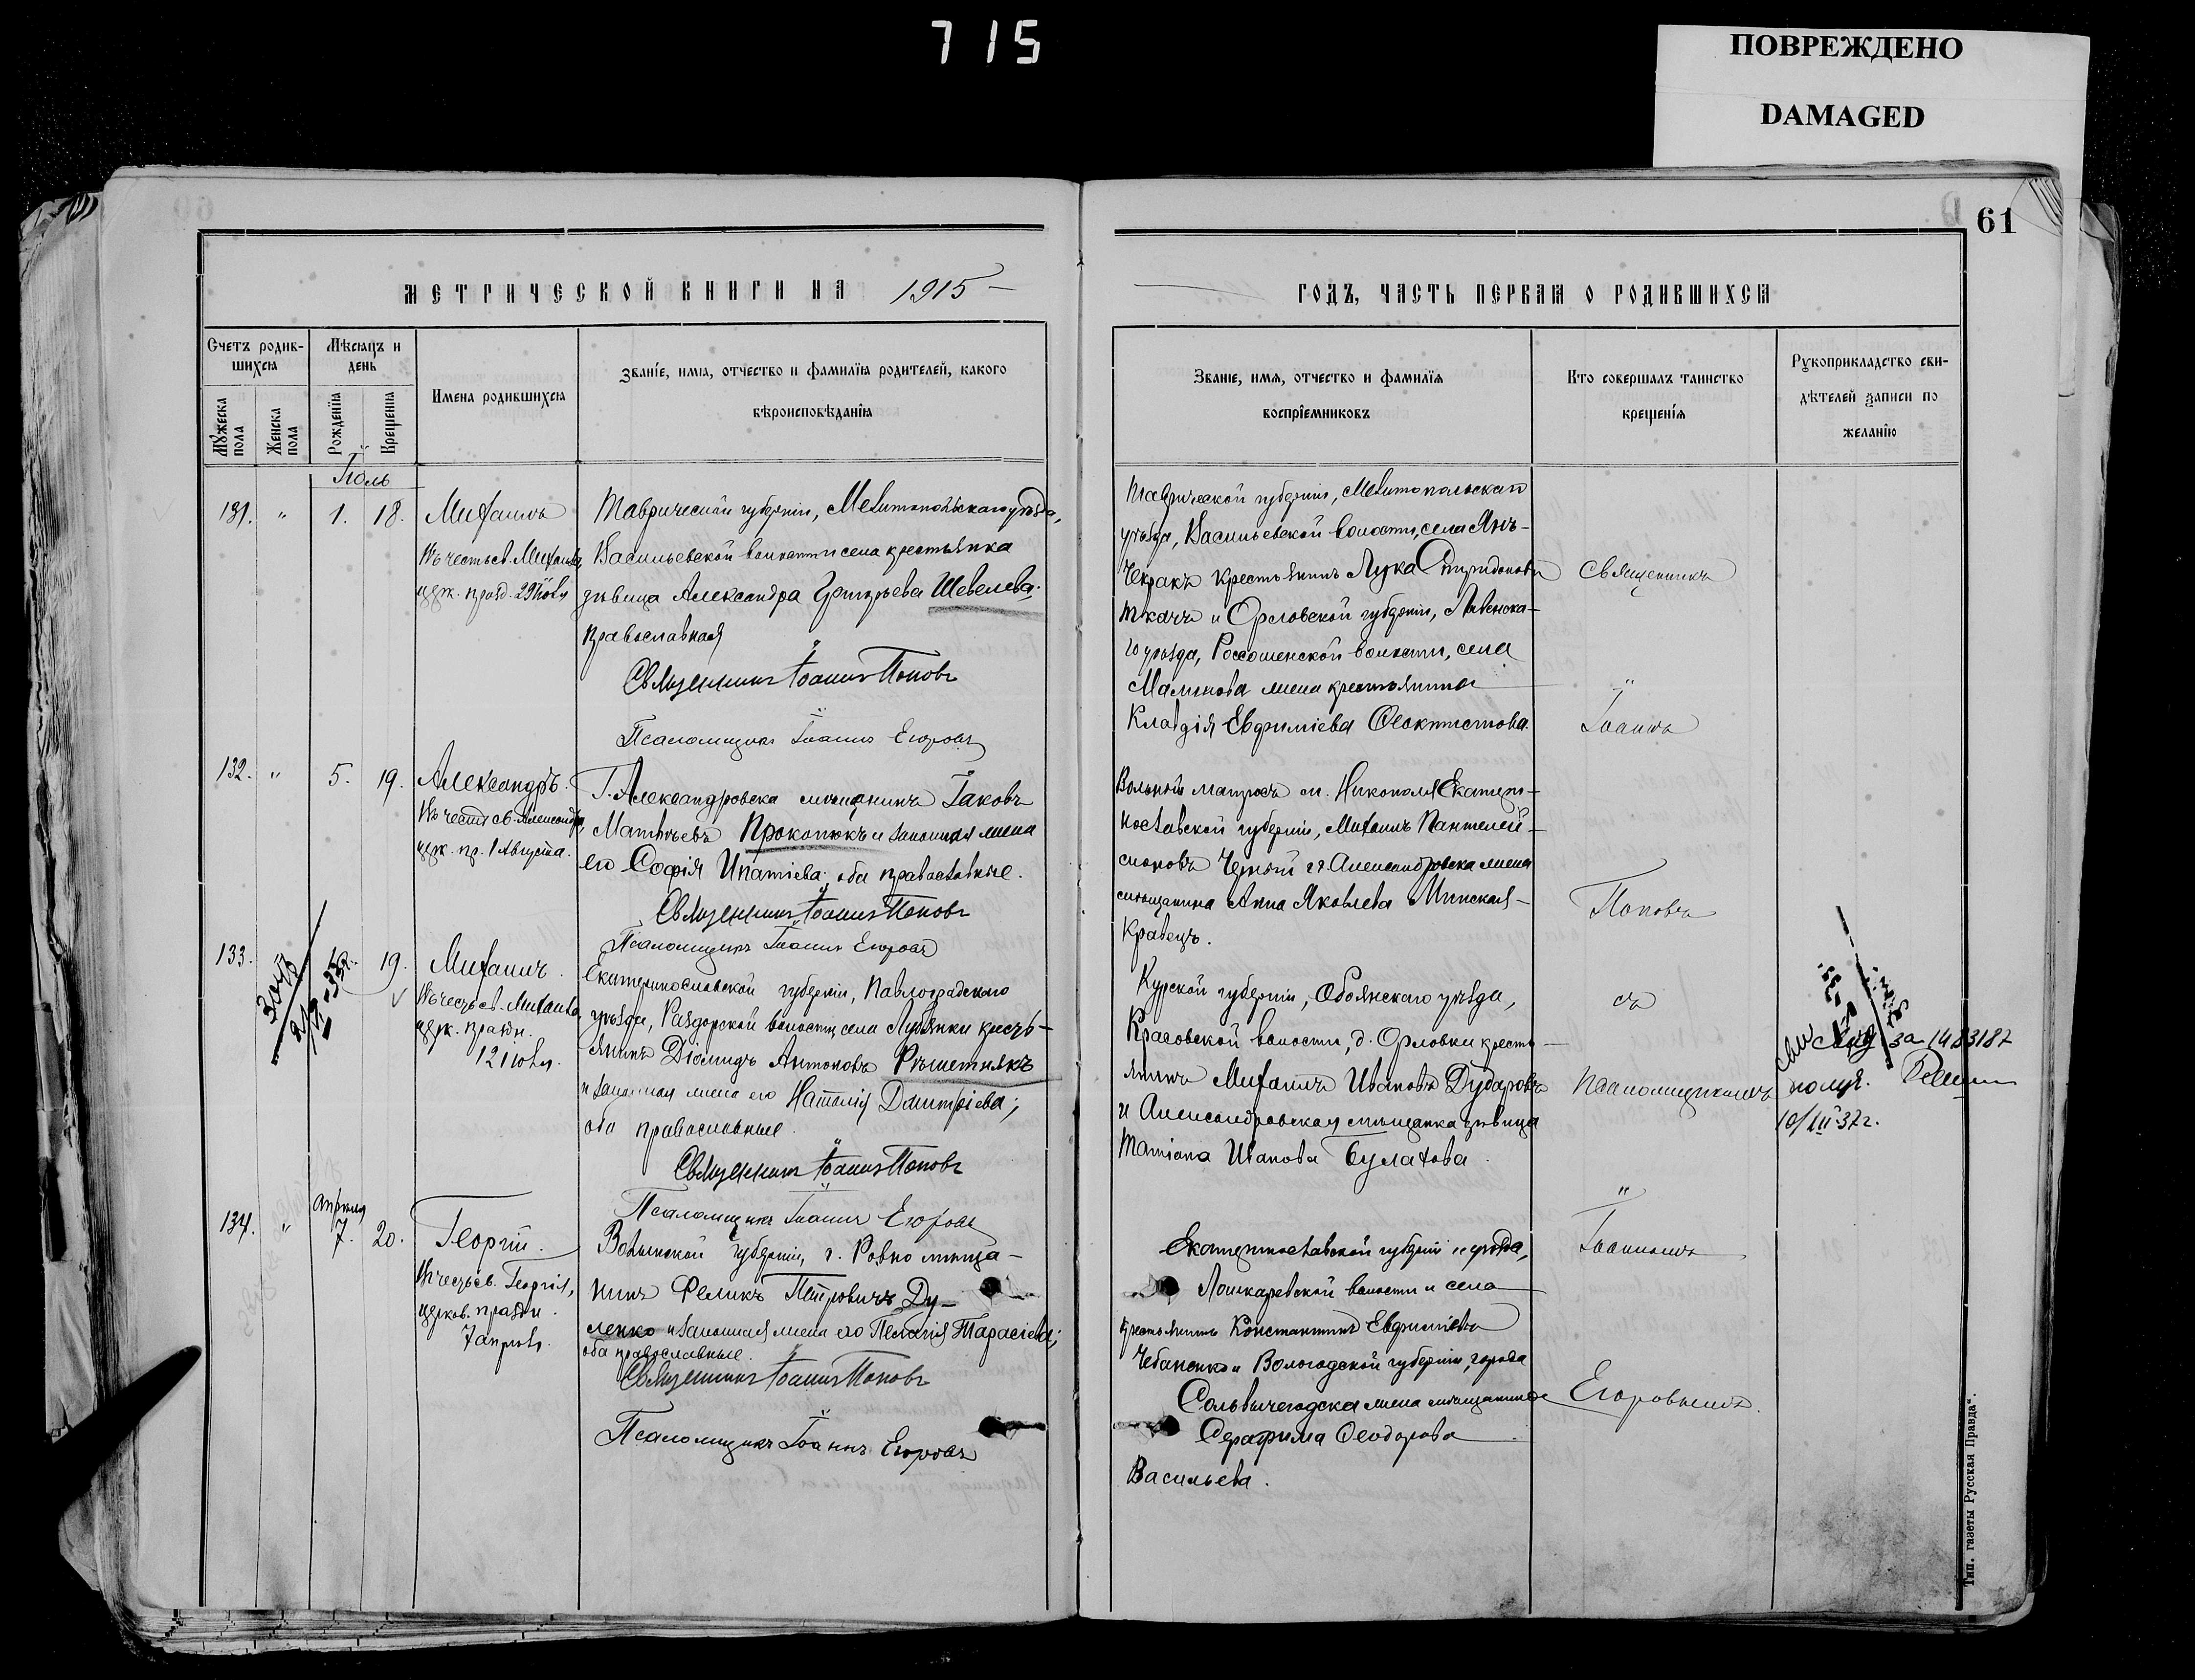 715
ПОВРЕЖДЕНО
DAMAGED
61
МЕТРИЧЕСКОЙ КНИГИ НА 1915
ГОДЪ, ЧАСТЬ ПЕРВАЯ О РОДИВШИХСЯ
Счетъ родив-
шихся
Мѣсяцъ и
день
Мужеска пола
Женска пола
Рожденїя
Крещенія
Имена родившихся
Званіе, имя, отчество и фамилїя родителей, какого
вѣроисповѣданїя
Званіе, имя, отчество и фамилїя
воспрїемниковъ
Кто совершалъ таинство
крещенїя
Рукоприкладство сви-
дѣтелей записи по
желанїю
Іюль
131. " 1. 18. Михаилъ
Въ честь св. Михаила,
церк. празд.
Таврической губерніи, Мелитопольскаго уѣзда,
Васильевской волости и села крестьянка
дѣвица Александра Григорьева Шевелева;
православная
Священникъ Іоаннъ Поповъ
Псаломщикъ Іоаннъ Егоровъ
Таврической губерніи, Мелитопольскаго
уѣзда, Васильевской волости, села Янъ-
Чекракъ крестьянинъ Лука Спиридоновъ
Ткачъ и Орловской губерніи, Ливенска-
го уѣзда, Россошенской волости, села
жена крестьянина
Клавдія Евфиміева Ѳеоктистова.
Священникъ
Іоаннъ
132. " 5. 19. Александръ.
Въ честь св. Александра,
церк. пр. 1 Августа.
Г. Александровска мѣщанинъ Іаковъ
Матѳѣевъ Прокопюкъ и законная жена
его Софія Ипатіева; оба православные.
Священникъ Іоаннъ Поповъ
Псаломщикъ Іоаннъ Егоровъ
Вольный матросъ м. Никополя Екатери-
нославской губерніи, Михаилъ Пантелей-
моновъ Черный и г. Александровска жена
мѣщанина Анна Яковлева Минская-
Кравецъ.
Поповъ
133. 19. Михаилъ.
Въ честь св. Михаила,
церк. праздн.
12 Іюля.
Екатеринославской губерніи, Павлоградскаго
уѣзда, Раздорской волости, села Лубянки кресть-
янинъ Діомидъ Антоновъ Рѣшетнякъ
и законная жена его Наталія Димитріева;
оба православные.
Священникъ Іоаннъ Поповъ
Псаломщикъ Іоаннъ Егоровъ
Курской губерніи, Обоянскаго уѣзда,
Красовской волости, д. Орловки кресть-
янинъ Михаилъ Ивановъ Дударовъ
и Александровская мѣщанка дѣвица
Татіана Иванова Булатова.
съ
псаломщикомъ
за 1483187
получ.
10/III-37г.
134. " апрѣля 7. 20. Георгій.
Въ честь св. Георгія,
церков. праздн.
7 апрѣля.
Волынской губерніи, г. Ровно мѣща-
нинъ Феликъ Петровичъ Ду-
ленко и законная жена его Пелагія Тарасіева;
оба православные.
Священникъ Іоаннъ Поповъ
Псаломщикъ Іоаннъ Егоровъ
Екатеринославской губерніи и уѣзда,
Лошкаревской волости и села
крестьянинъ Константинъ Евфиміевъ
Чебаненко и Вологодской губерніи, города
Сольвычегодска жена мѣщанина
Серафима Ѳеодорова
Васильева.
Іоанномъ
Егоровымъ.
Тип. газеты Русская Правда".